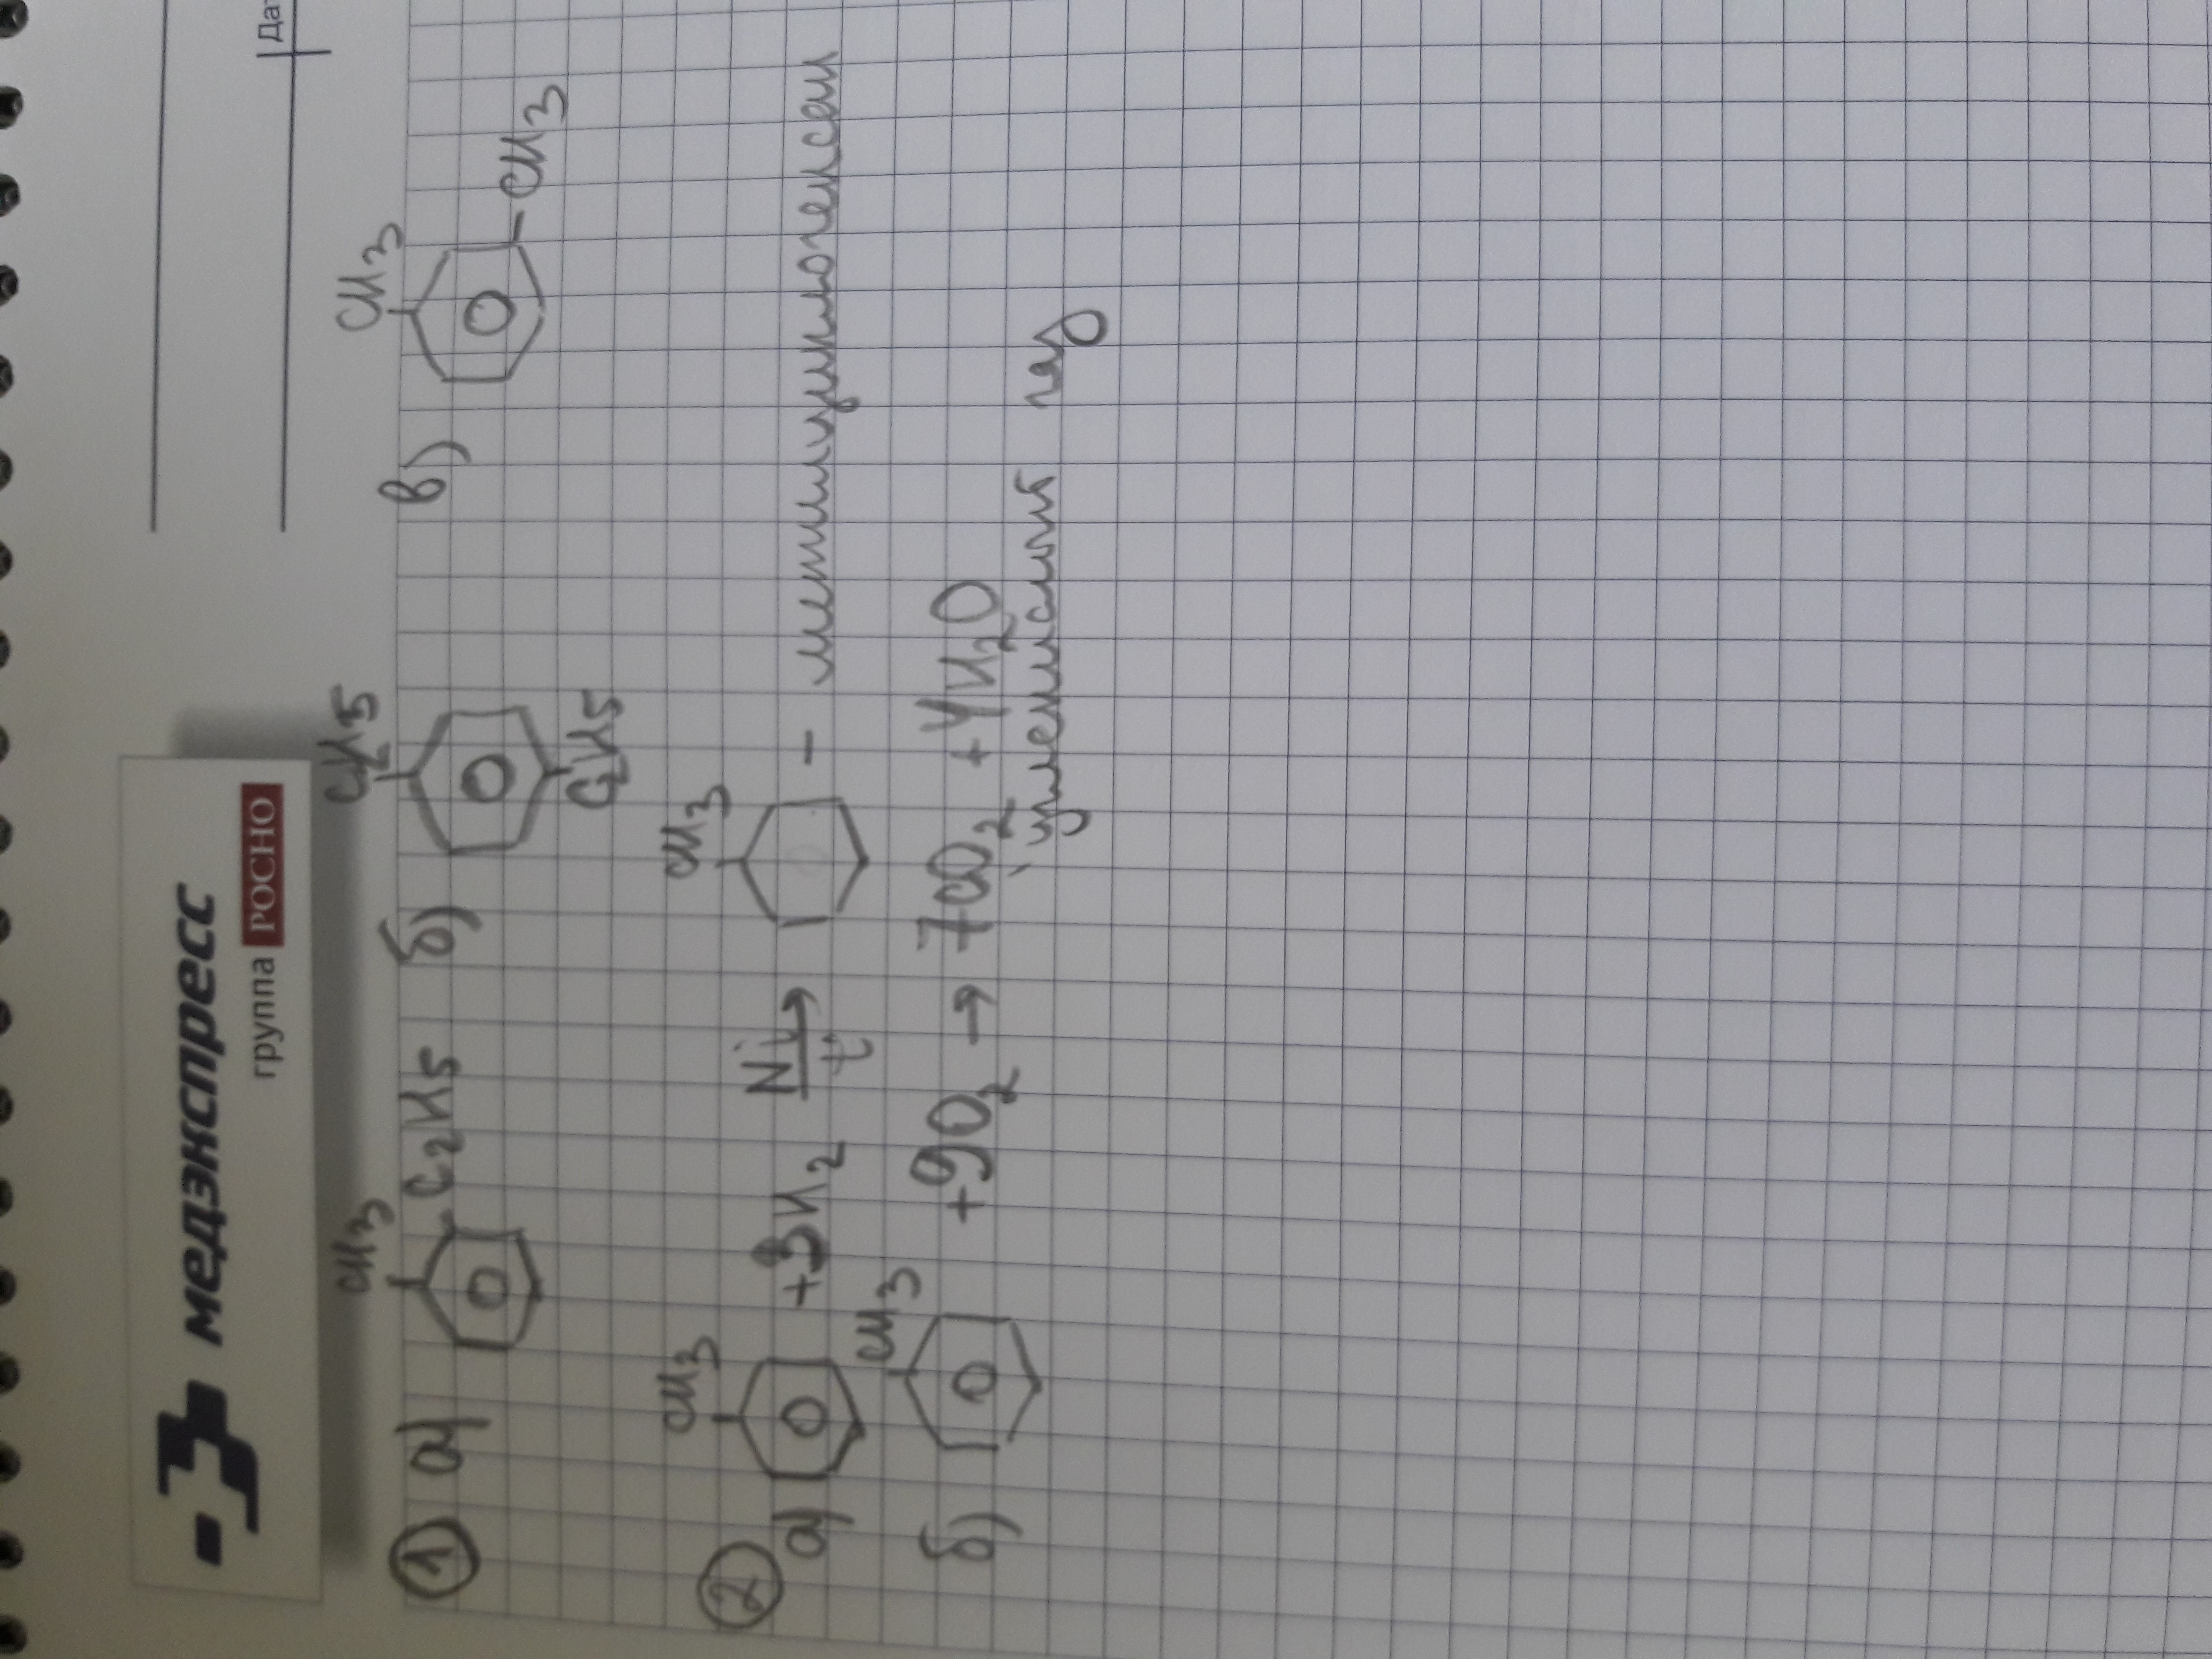 медэкспресс
группа РОСНО
Дат
① а) CH3 C2H5 б) C2H5 C2H5 в) CH3 CH3
②
а) CH3 +3H2 Ni t CH3 - метилциклогексан
б) CH3 +9O2 → 7CO2 + 4H2O
углекислый газ